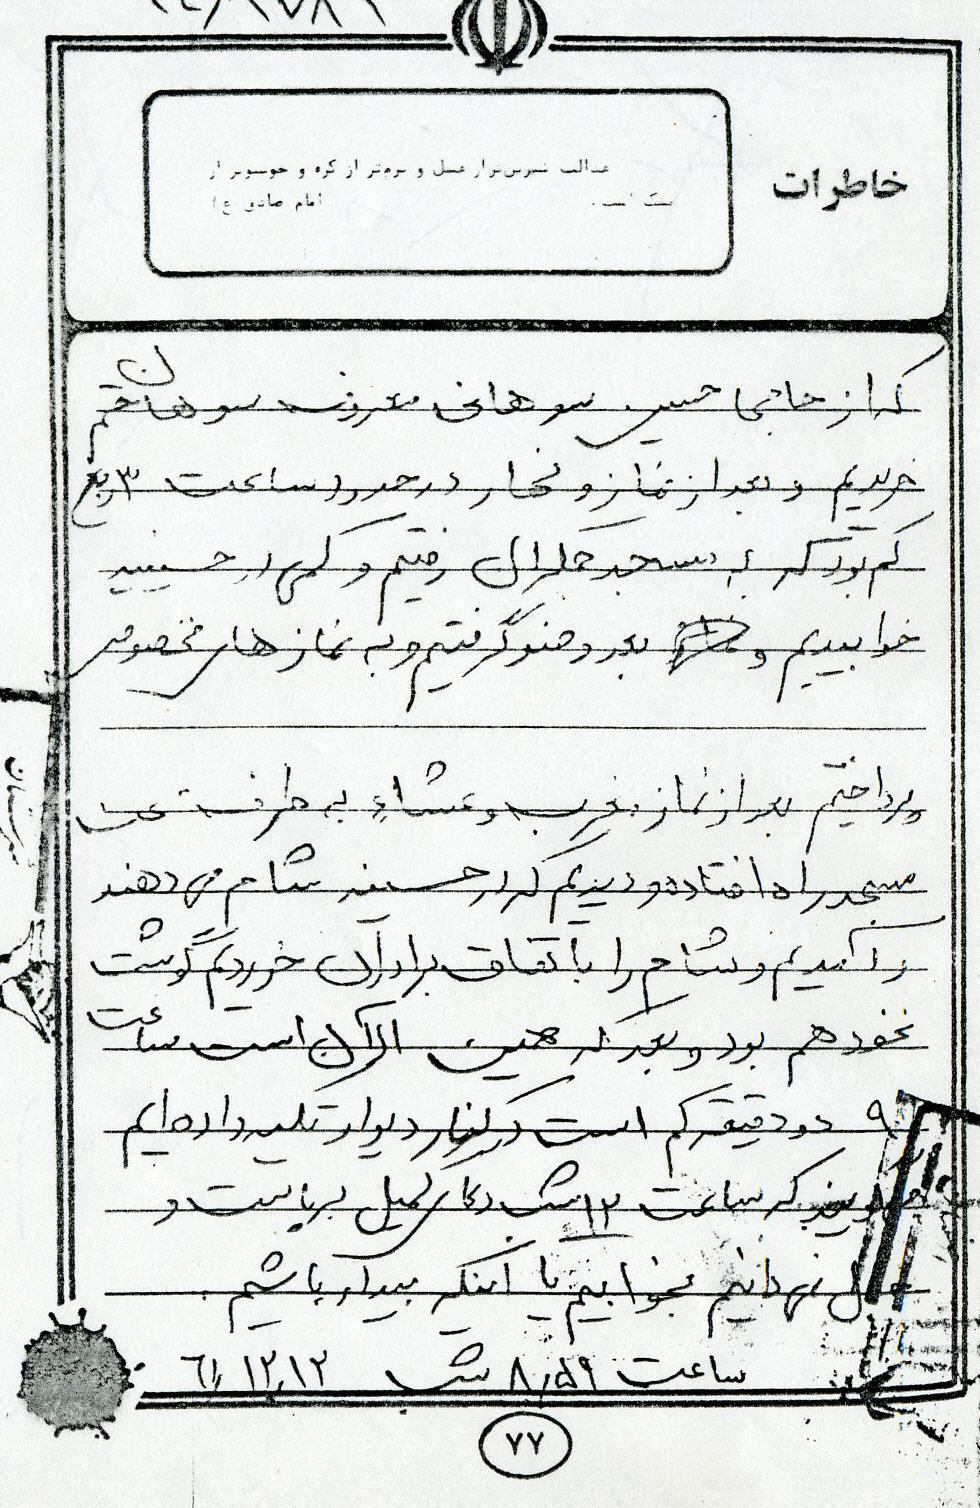 خاطرات
عدالت شیرین‌تر از عسل و نرم‌تر از کره و خوشبوتر از
مشک است. امام صادق (ع)
که از حاجی حسین سوهانی معروف سوهان قم
خریدیم و بعد از نماز و نهار در حدود ساعت ۳ ربع
کم بود که به مسجد جمکران رفتیم و کمی در حسینیه
خوابیدیم و بعد وضو گرفتیم و به نمازهای مخصوص
پرداختیم بعد از نماز مغرب و عشاء به طرف
مسجد راه افتاده و دیدیم که در حسینیه شام می دهند
و شام را با تفاق برادران خوردیم گوشت
نخود هم بود و بعد که همین الان است ساعت
۹ دو دقیقه کم است در کنار دیوار تکیه داده ایم
می گویند که ساعت ۱۲ شب دعای کمیل برپاست و
حال نمی دانیم بخوابیم یا اینکه بیدار باشیم.
ساعت ۸٫۵۹ شب ۶۱٫۱۲٫۱۲
۷۷